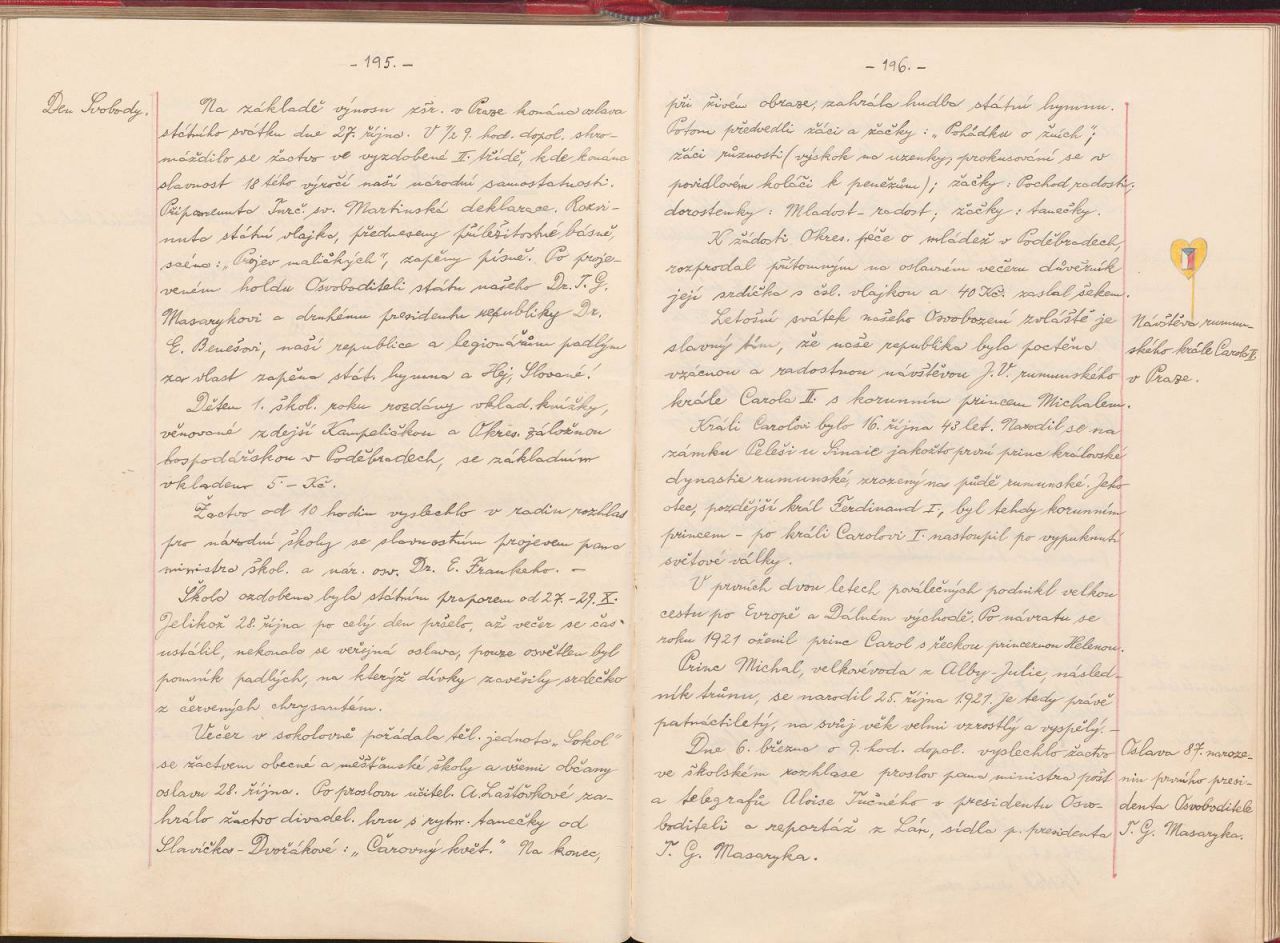 - 195. -
Den Svobody.
Na základě výnosu zšr. v Praze konána oslava
státního svátku dne 27. října. V 1/2 9. hod. dopol. shro-
máždilo se žactvo ve vyzdobené II. třídě, kde konána
slavnost 18 tého výročí naší národní samostatnosti.
Připomenuta Turč. sv. Martinská deklarace. Rozvi-
nuta státní vlajka, předneseny příležitostné básně,
scéna: „Projev maličkých", zapěny písně. Po proje-
veném holdu Osvoboditeli státu našeho Dr. T. G.
Masarykovi a druhému presidentu republiky Dr.
E. Benešovi, naší republice a legionářům padlým
za vlast zapěna stát. hymna a Hej, Slované!
Dětem 1. škol. roku rozdány vklad. knížky,
věnované zdejší Kampeličkou a Okres. záložnou
hospodářskou v Poděbradech, se základním
vkladem 5.- Kč.
Žactvo od 10 hodin vyslechlo v radiu rozhlas
pro národní školy se slavnostním projevem pana
ministra škol. a nár. osv. Dr. E. Frankeho. -
Škola ozdobena byla státním praporem od 27.-29. X.
Jelikož 28. října po celý den pršelo, až večer se čas
ustálil, nekonala se veřejná oslava, pouze osvětlen byl
pomník padlých, na kterýž dívky zavěsily srdéčko
z červených chrysantém.
Večer v sokolovně pořádala těl. jednota „Sokol"
se žactvem obecné a měšťanské školy a všemi občany
oslavu 28. října. Po proslovu učitel. A. Laštůvkové za-
hrálo žactvo divadel. hru s rytm. tanečky od
Slavíčka - Dvořákové: „Čarovný květ." Na konec,
- 196. -
při živém obraze, zahrála hudba státní hymnu.
Potom předvedli žáci a žačky: „Pohádku o žních";
žáci různosti (výskok na uzenky, prokusování se v
povidlovém koláči k penězům); žačky: Pochod radosti,
dorostenky: Mladost - radost; žačky: tanečky.
K žádosti Okres. péče o mládež v Poděbradech,
rozprodal přítomným na oslavném večeru důvěrník
její srdíčka s čsl. vlajkou a 40 Kč. zaslal šekem.
Letošní svátek našeho Osvobození zvláště je
slavný tím, že naše republika byla poctěna
vzácnou a radostnou návštěvou J. V. rumunského
krále Carola II. s korunním princem Michalem.
Králi Carolovi bylo 16. října 43 let. Narodil se na
zámku Peleši u Sinaie jakožto první princ královské
dynastie rumunské, zrozený na půdě rumunské. Jeho
otec, pozdější král Ferdinand I., byl tehdy korunním
princem - po králi Carolovi I. nastoupil po vypuknutí
světové války.
V prvních dvou letech poválečných podnikl velkou
cestu po Evropě a Dálném východě. Po návratu se
roku 1921 oženil princ Carol s řeckou princeznou Helenou.
Princ Michal, velkovévoda z Alby-Julie, násled-
ník trůnu, se narodil 25. října 1921. Je tedy právě
patnáctiletý, na svůj věk velmi vzrostlý a vyspělý. -
Dne 6. března o 9. hod. dopol. vyslechlo žactvo
ve školském rozhlase proslov pana ministra pošt
a telegrafů Aloise Tučného o presidentu Osvo-
boditeli a reportáž z Lán, sídla p. presidenta
T. G. Masaryka.
Návštěva rumun-
ského krále Carola II.
v Praze.
Oslava 87. naroze-
nin prvního presi-
denta Osvoboditele
T. G. Masaryka.